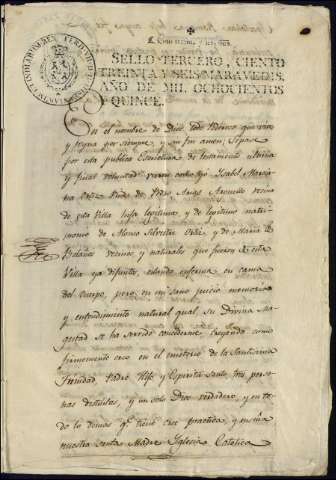 SELLO TERCERO, CIENTO
TREINTA Y SEIS MARAVEDIS,
AÑO DE MIL OCHOCIENTOS
Y QUINCE.
En el nombre de Dios todo Poderoso que vive
y reyna por siempre y sin fin amen; Sepase
por esta publica Escritura de testamento ultima
y final voluntad vieren como yo Isabel
Ortiz Viuda de Pedro vecina
de esta Villa hija legitima y de legitimo matri-
monio de Alonso Silvestre Ortiz y de Maria
Bolaños vecinos y naturales que fueron de esta
Villa ya difuntos, estando enferma en cama
del cuerpo, pero en mi sano juicio memoria
y entendimiento natural qual su Divina Ma-
gestad se ha servido concederme, creyendo como
firmemente creo en el misterio de la Santisima
Trinidad, Padre Hijo y Espiritu Santo tres perso-
nas distintas, y un solo Dios verdadero, y en to-
do lo demas qe. tiene cree practica, y enseña
nuestra Santa Madre Iglesia Catolica